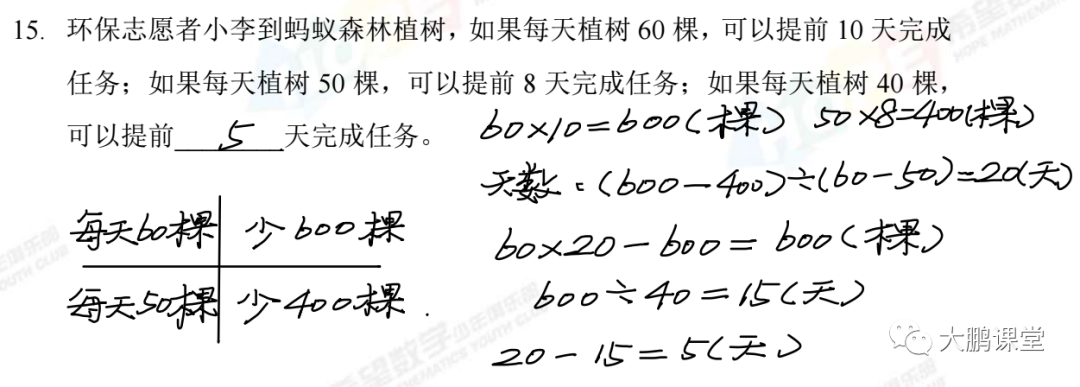 15. 环保志愿者小李到蚂蚁森林植树，如果每天植树 60 棵，可以提前 10 天完成
任务；如果每天植树 50 棵，可以提前 8 天完成任务；如果每天植树 40 棵，
可以提前 5 天完成任务。
60×10=600(棵) 50×8=400(棵)
天数：(600-400)÷(60-50)=20(天)
每天60棵 少600棵
60×20-600=600(棵)
每天50棵 少400棵.
600÷40=15(天)
20-15=5(天)
大鹏课堂